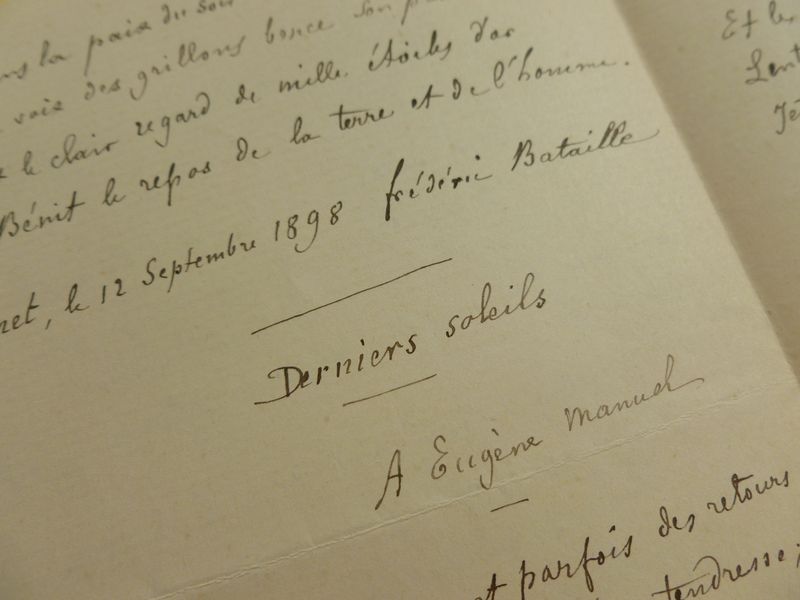 la paix du soir
voix des grillons berce son
le clair regard de mille étoiles d'or
Bénit le repos de la terre et de l'homme.
le 12 Septembre 1898 frédéric Bataille
Derniers soleils
A Eugène Manuel
parfois des retours
tendresse;
Et les